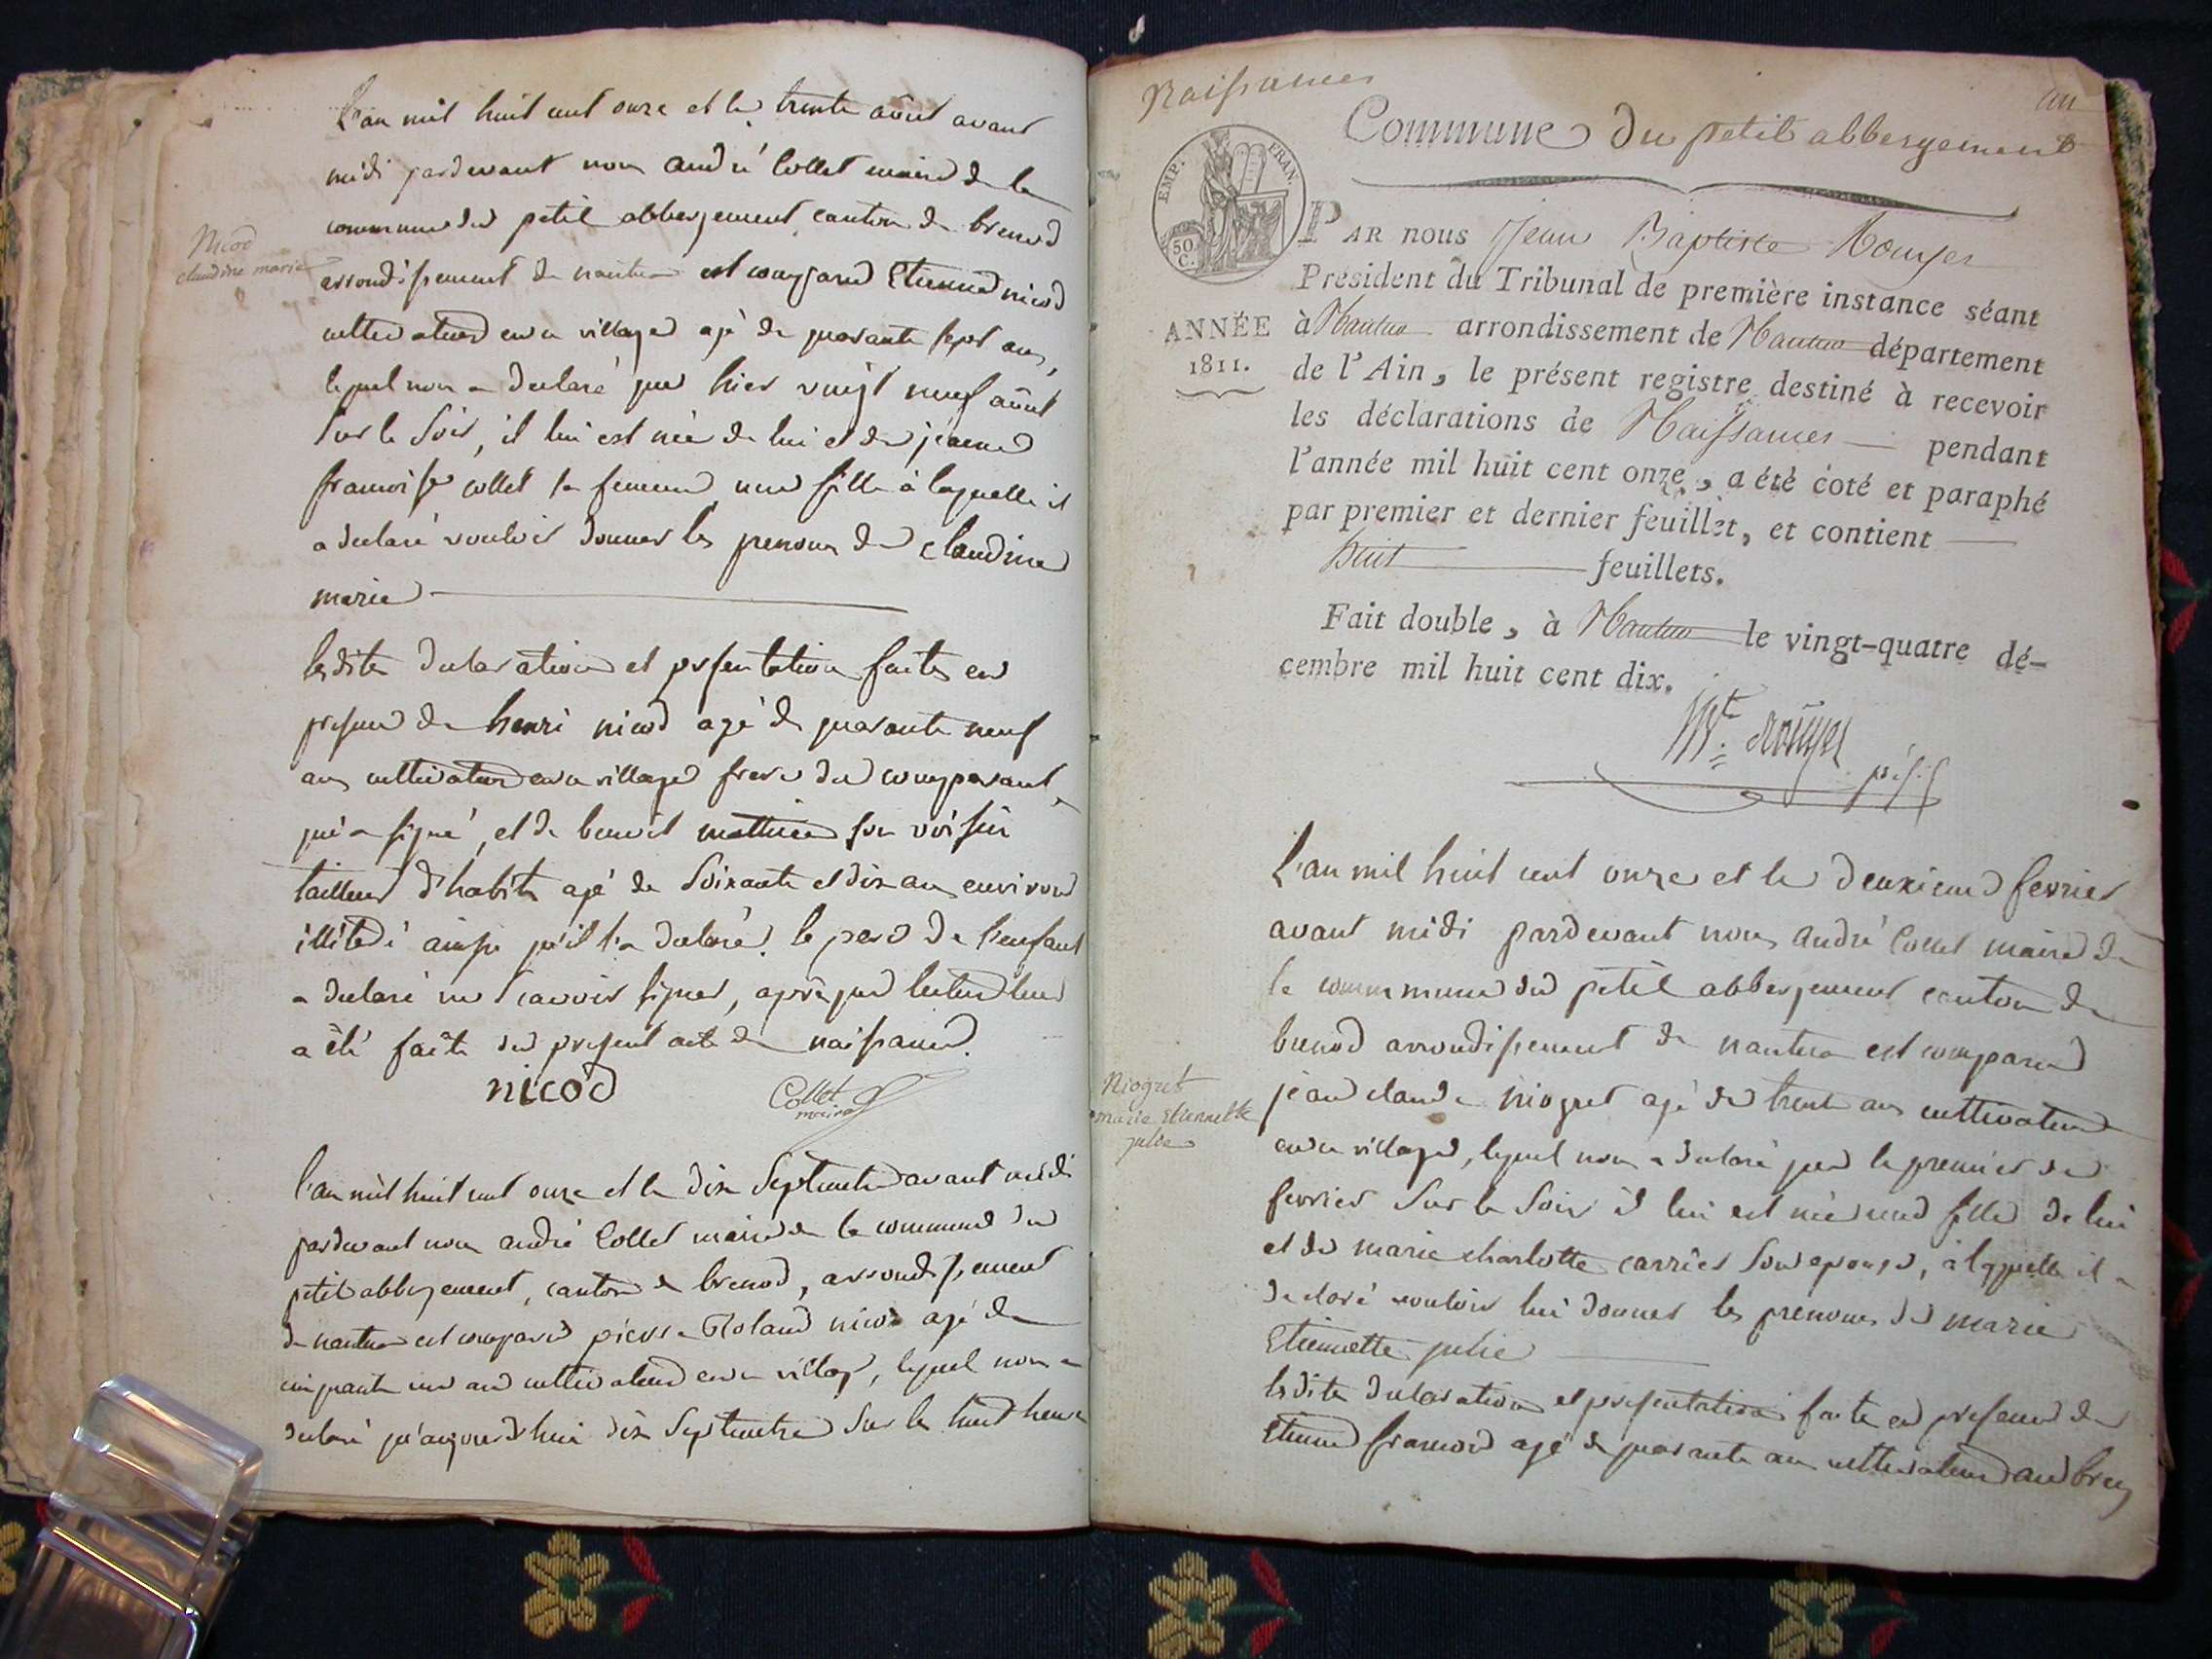 L'an mil huit cent onze et le trente août avant
midi pardevant nous andré Collet maire de la
commune du petit abbergement, canton de brenod
arrondissement de nantua est comparu Etienne nicod
cultivateur en ce village agé de quarante sept ans,
lequel nous a declaré que hier vingt neuf août
sur le soir, il lui est née de lui et de jeanne
francoise collet sa femme une fille à laquelle il
a declaré vouloir donner les prenoms de claudine
marie
Nicod
claudine marie
lesdites declaration et presentation faites en
presence de henri nicod agé de quarante neuf
ans cultivateur en ce village frere du comparant,
qui a signé, et de benoit mathieu son voisin
tailleur d'habits agé de soixante et dix ans environ
illitéré ainsi qu'il l'a declaré. le pere de l'enfant
a declaré ne scavoir signer, après que lecture leur
a été faite du present acte de naissance.
nicod Collet
maire
l'an mil huit cent onze et le dix Septembre avant midi
pardevant nous andré Collet maire de la commune du
petit abbergement, canton de brenod, arrondissement
de nantua est comparu pierre Roland nicod agé de
cinquante un ans cultivateur en ce village, lequel nous a
declaré qu'aujourd'hui dix Septembre sur les huit heures
Naissances
un
Commune du petit abbergement
EMP. FRAN.
50 C.
PAR nous Jean Baptiste Rouyer
Président du Tribunal de première instance séant
ANNÉE
1811.
à Nantua arrondissement de Nantua département
de l'Ain, le présent registre destiné à recevoir
les déclarations de Naissances pendant
l'année mil huit cent onze, a été coté et paraphé
par premier et dernier feuillet, et contient
huit feuillets.
Fait double, à Nantua le vingt-quatre dé-
cembre mil huit cent dix.
Rouyer
L'an mil huit cent onze et le deuxieme fevrier
avant midi pardevant nous andré Collet maire de
la commune du petit abbergement canton de
brenod arrondissement de nantua est comparu
Niogret
marie Etiennette
julie
jean claude niogret agé de trente ans cultivateur
en ce village, lequel nous a declaré que le premier de
fevrier sur le soir il lui est née une fille de lui
et de marie charlotte carrier son epouse, à laquelle il a
declaré vouloir lui donner les prenoms de marie
Etiennette julie
lesdites declaration et presentation faites en presence de
Etienne francois agé de quarante ans cultivateur